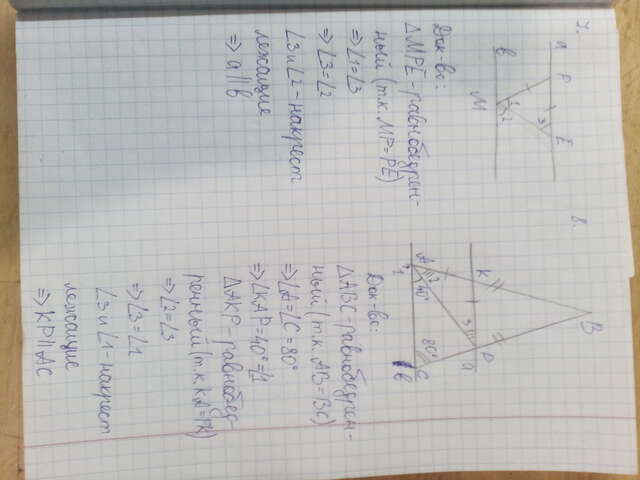 7.
a P E
в M
1 2 3
Док-во:
△MPE - равнобедрен-
ный (т.к. MP=PE)
⇒ ∠1=∠3
⇒ ∠3=∠2
∠3 и ∠2 - накрест
лежащие
⇒ a || в
8.
B
K P a
A C в
1 2 3 40° 80°
Док-во:
△ABC - равнобедрен-
ный (т.к. AB=BC)
⇒ ∠A=∠C=80°
⇒ ∠KAP=40°=∠1
△AKP - равнобед
ренный (т.к. KA=PK)
⇒ ∠2=∠3
⇒ ∠3=∠1
∠3 и ∠1 - накрест
лежащие
⇒ KP || AC